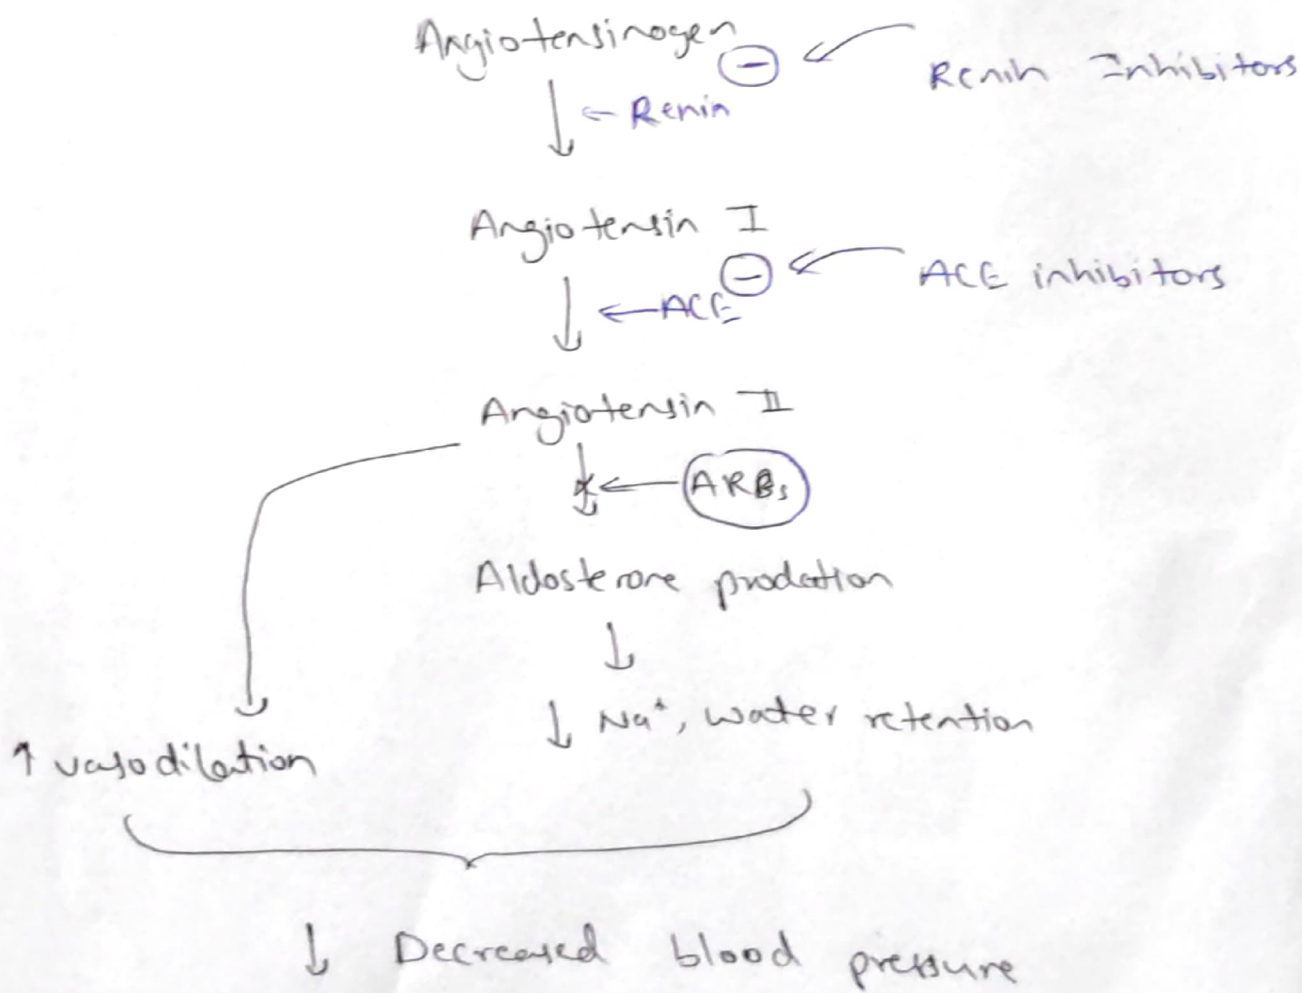 Angiotensinogen
⊖ ← Renin Inhibitors
↓ ← Renin
Angiotensin I
⊖ ← ACE inhibitors
↓ ← ACE
Angiotensin II
↓ ← ARBs
Aldosterone prodction
↓
↓ Na⁺, water retention
↑ vasodilation
↓ Decreased blood pressure